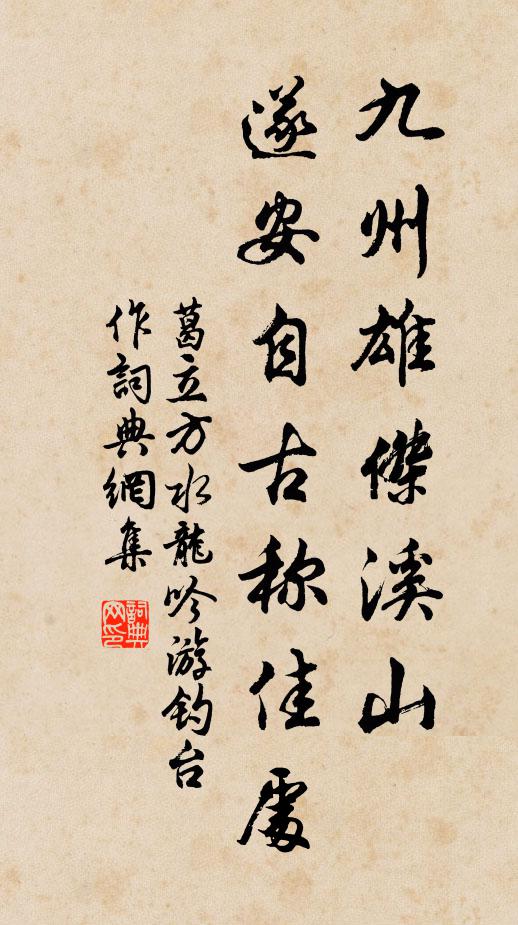 九州雄傑溪山
遂安自古称佳處
葛立方水龍吟游釣台
作詞典網集
詞典
网印